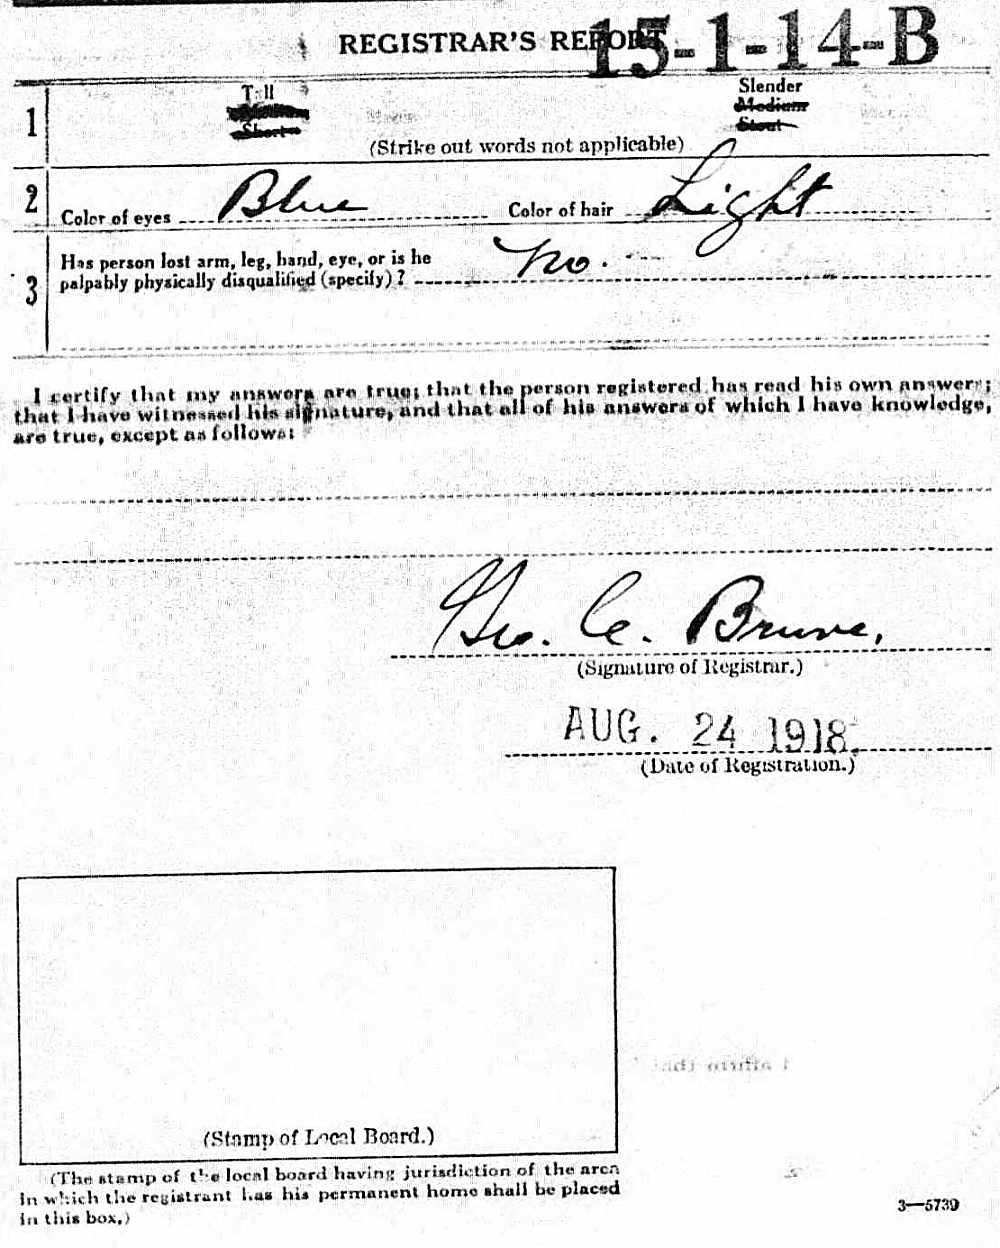 REGISTRAR'S REPORT 15-1-14-B
1 Tall Slender
Medium Medium
Short Stout
(Strike out words not applicable)
2 Color of eyes Blue Color of hair Light
3 Has person lost arm, leg, hand, eye, or is he
palpably physically disqualified (specify)? No.
I certify that my answers are true; that the person registered has read his own answers;
that I have witnessed his signature, and that all of his answers of which I have knowledge,
are true, except as follows:
Geo. C. Brune.
(Signature of Registrar.)
AUG. 24 1918.
(Date of Registration.)
I affirm that
(Stamp of Local Board.)
(The stamp of the local board having jurisdiction of the area
in which the registrant has his permanent home shall be placed
in this box.)
3—5739